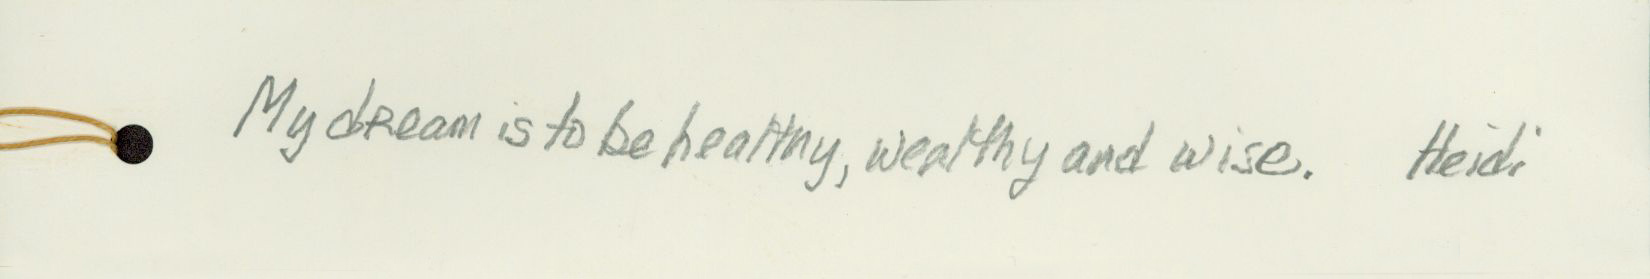 My dream is to be healthy, wealthy and wise. Heidi